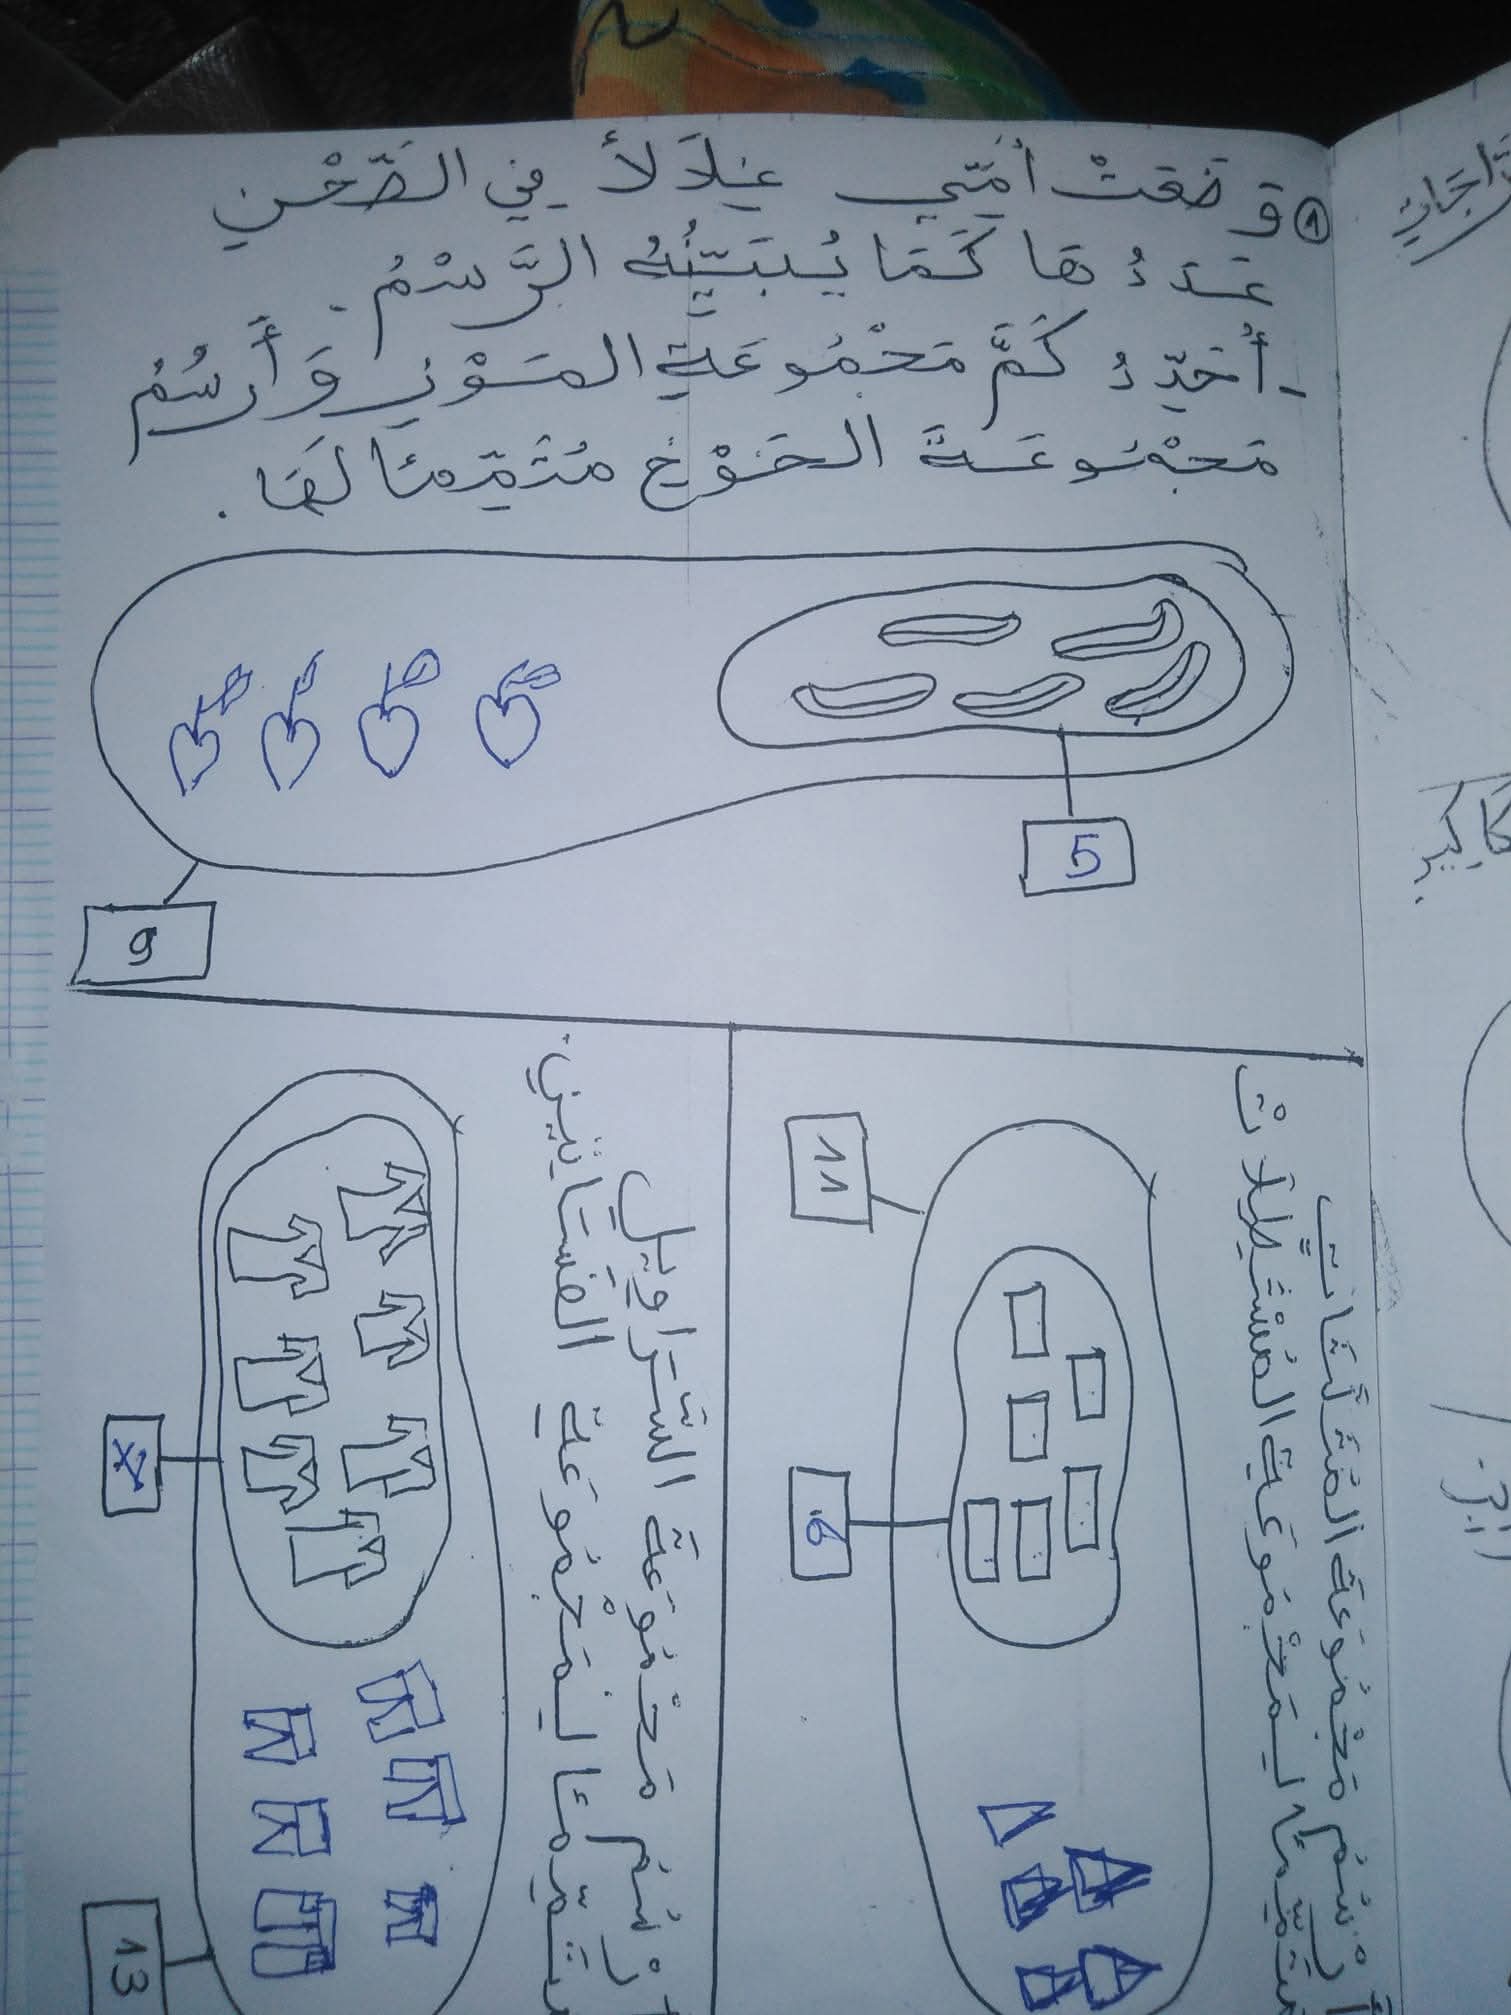 ① وَضَعَتْ أُمِّي غِلَالًا فِي الصَّحْنِ
عَدَدُهَا كَمَا يُبَيِّنُهُ الرَّسْمُ.
- أُحَدِّدُ كَمَّ مَجْمُوعَةِ المَوْزِ وَأَرْسُمُ
مَجْمُوعَةَ الخَوْخِ مُتَمِّمًا لَهَا.
5
9
أَرْسُمُ مَجْمُوعَةَ المُثَلَّثَاتِ
مُتَمِّمًا لِمَجْمُوعَةِ المُسْتَطِيلَاتْ
11
6
أَرْسُمُ مَجْمُوعَةَ السَّرَاوِيلِ
مُتَمِّمًا لِمَجْمُوعَةِ الفَسَاتِينِ.
7
13